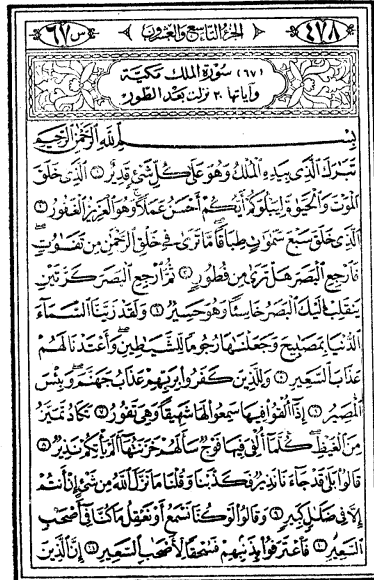 ٤٧٨ الجزء التاسع والعشرون س ٦٧
(٦٧) سورة الملك مكية
وآياتها ٣٠ نزلت بعد الطور
بسم الله الرحمن الرحيم
تبرك الذي بيده الملك وهو على كل شيء قدير ١ الذي خلق
الموت والحيوة ليبلوكم أيكم أحسن عملا وهو العزيز الغفور ٢
الذي خلق سبع سموت طباقا ما ترى في خلق الرحمن من تفوت
فارجع البصر هل ترى من فطور ٣ ثم ارجع البصر كرتين
ينقلب إليك البصر خاسئا وهو حسير ٤ ولقد زينا السماء
الدنيا بمصبيح وجعلنها رجوما للشيطين وأعتدنا لهم
عذاب السعير ٥ وللذين كفروا بربهم عذاب جهنم وبئس
المصير ٦ إذا ألقوا فيها سمعوا لها شهيقا وهي تفور ٧ تكاد تميز
من الغيظ كلما ألقي فيها فوج سألهم خزنتها ألم يأتكم نذير ٨
قالوا بلى قد جاءنا نذير فكذبنا وقلنا ما نزل الله من شيء إن أنتم
إلا في ضلل كبير ٩ وقالوا لو كنا نسمع أو نعقل ما كنا في أصحب
السعير ١٠ فاعترفوا بذنبهم فسحقا لأصحب السعير ١١ إن الذين